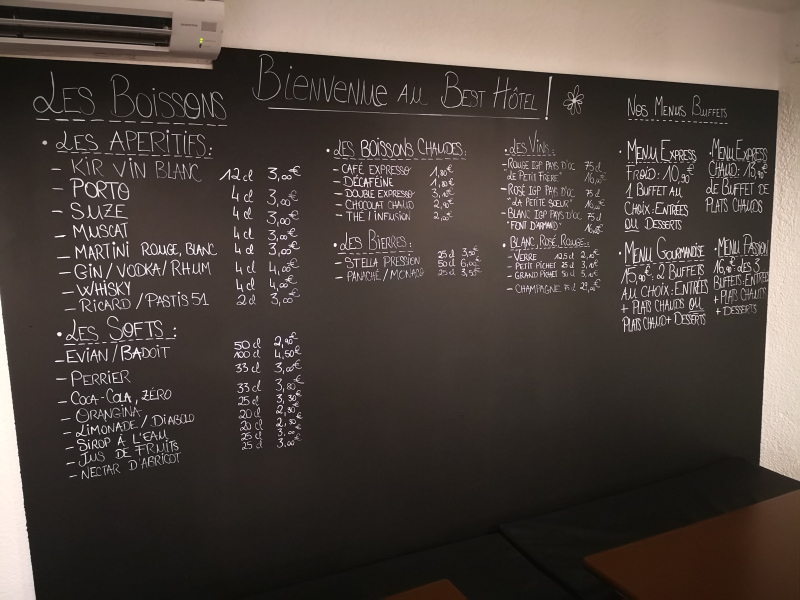 Bienvenue au Best Hôtel !
Les Boissons
• Les Aperitifs :
- Kir vin blanc 12 cl 3,00€
- Porto 4 cl 3,00€
- Suze 4 cl 3,00€
- Muscat 4 cl 3,00€
- Martini rouge, blanc 4 cl 3,00€
- Gin/Vodka/Rhum 4 cl 4,00€
- Whisky 4 cl 4,00€
- Ricard/Pastis 51 2 cl 3,00€
• Les Softs :
- Evian/Badoit 50 cl 2,90€
100 cl 4,50€
- Perrier 33 cl 3,00€
- Coca-Cola, zéro 33 cl 3,80€
- Orangina 25 cl 3,30€
- Limonade/Diabolo 20 cl 2,30€
- Sirop à l'eau 20 cl 2,30€
- Jus de fruits 25 cl 3,00€
- Nectar d'abricot 25 cl 3,00€
• Les Boissons Chaudes :
- Café expresso 1,80€
- Décaféiné 1,80€
- Double expresso 3,40€
- Chocolat chaud 2,90€
- Thé/infusion 2,00€
• Les Bierres :
- Stella pression 25 cl 3,50€
50 cl 6,00€
- Panaché/Monaco 25 cl 3,50€
• Les Vins :
- Rouge IGP Pays d'Oc 75 cl
"Le Petit Frère"
- Rosé IGP Pays d'Oc 75 cl
"La Petite Soeur"
- Blanc IGP Pays d'Oc 75 cl
"Font d'Armand"
• Blanc, Rosé, Rouge :
- Verre 12.5 cl
- Petit pichet 25 cl
- Grand pichet 50 cl
- Champagne 75 cl
Nos Menus Buffets
• Menu Express
Froid : 10,90€
1 buffet au
choix : entrées
ou desserts
• Menu Express
Chaud : 13,90€
le buffet de
plats chauds
• Menu Gourmandise
15,90€ : 2 buffets
au choix : entrées
+ plats chauds ou
plats chaud + desserts
• Menu Passion
16,90€ : les 3
buffets : entrées
+ plats chauds
+ desserts